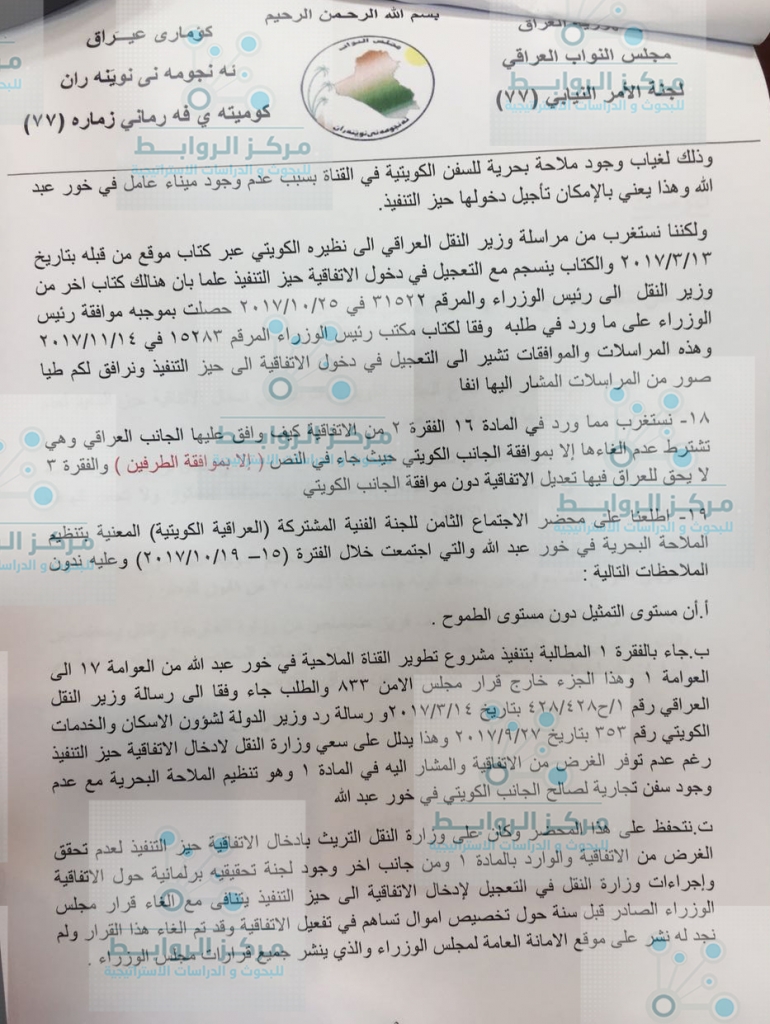 بسم الله الرحمن الرحيم
جمهورية العراق
مجلس النواب العراقي
لجنة الأمر النيابي (٧٧)
كۆماری عیـراق
ئه نجومه نى نوێنه ران
كوميته ي فه رماني زماره (٧٧)
مجلس النواب
ئه نجومه نى نوێنه ران
وذلك لغياب وجود ملاحة بحرية للسفن الكويتية في القناة بسبب عدم وجود ميناء عامل في خور عبد
الله وهذا يعني بالإمكان تأجيل دخولها حيز التنفيذ.
ولكننا نستغرب من مراسلة وزير النقل العراقي الى نظيره الكويتي عبر كتاب موقع من قبله بتاريخ
٢٠١٧/٣/١٣ والكتاب ينسجم مع التعجيل في دخول الاتفاقية حيز التنفيذ علما بان هنالك كتاب اخر من
وزير النقل الى رئيس الوزراء والمرقم ٣١٥٢٢ في ٢٠١٧/١٠/٢٥ حصلت بموجبه موافقة رئيس
الوزراء على ما ورد في طلبه وفقا لكتاب مكتب رئيس الوزراء المرقم ١٥٢٨٣ في ٢٠١٧/١١/١٤
وهذه المراسلات والموافقات تشير الى التعجيل في دخول الاتفاقية الى حيز التنفيذ ونرافق لكم طيا
صور من المراسلات المشار اليها انفا
١٨- نستغرب مما ورد في المادة ١٦ الفقرة ٢ من الاتفاقية كيف وافق عليها الجانب العراقي وهي
تشترط عدم الغاءها إلا بموافقة الجانب الكويتي حيث جاء في النص ( إلا بموافقة الطرفين ) والفقرة ٣
لا يحق للعراق فيها تعديل الاتفاقية دون موافقة الجانب الكويتي
١٩- اطلعنا على محضر الاجتماع الثامن للجنة الفنية المشتركة (العراقية الكويتية) المعنية بتنظيم
الملاحة البحرية في خور عبد الله والتي اجتمعت خلال الفترة (١٥– ٢٠١٧/١٠/١٩) وعليه ندون
الملاحظات التالية :
أ.أن مستوى التمثيل دون مستوى الطموح .
ب.جاء بالفقرة ١ المطالبة بتنفيذ مشروع تطوير القناة الملاحية في خور عبد الله من العوامة ١٧ الى
العوامة ١ وهذا الجزء خارج قرار مجلس الامن ٨٣٣ والطلب جاء وفقا الى رسالة وزير النقل
العراقي رقم ١/ح٤٢٨/٤٢٨ بتاريخ ٢٠١٧/٣/١٤و رسالة رد وزير الدولة لشؤون الاسكان والخدمات
الكويتي رقم ٣٥٣ بتاريخ ٢٠١٧/٩/٢٧ وهذا يدلل على سعي وزارة النقل لادخال الاتفاقية حيز التنفيذ
رغم عدم توفر الغرض من الاتفاقية والمشار اليه في المادة ١ وهو تنظيم الملاحة البحرية مع عدم
وجود سفن تجارية لصالح الجانب الكويتي في خور عبد الله
ت.نتحفظ على هذا المحضر وكان على وزارة النقل التريث بادخال الاتفاقية حيز التنفيذ لعدم تحقق
الغرض من الاتفاقية والوارد بالمادة ١ ومن جانب اخر وجود لجنة تحقيقيه برلمانية حول الاتفاقية
وإجراءات وزارة النقل في التعجيل لإدخال الاتفاقية الى حيز التنفيذ يتنافى مع الغاء قرار مجلس
الوزراء الصادر قبل سنة حول تخصيص اموال تساهم في تفعيل الاتفاقية وقد تم الغاء هذا القرار ولم
نجد له نشر على موقع الامانة العامة لمجلس الوزراء والذي ينشر جميع قرارات مجلس الوزراء .
مركز الروابط
للبحوث و الدراسات الاستراتيجية